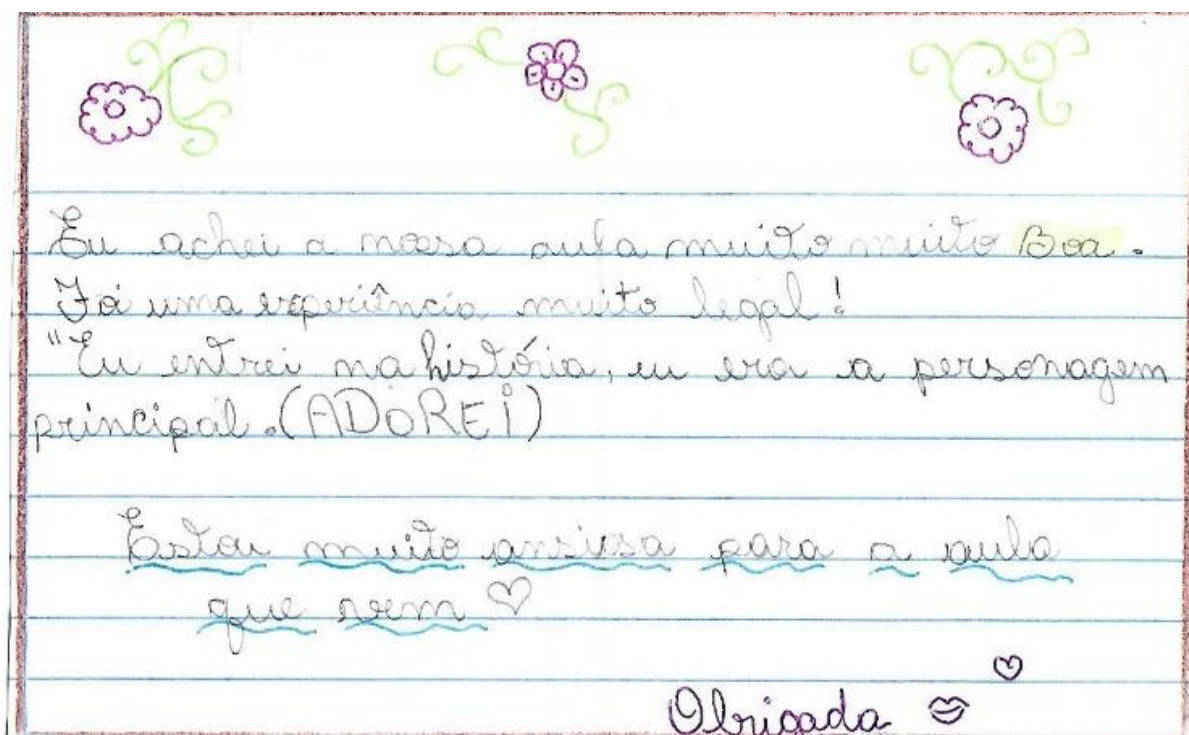 Eu achei a nossa aula muito muito Boa.
Foi uma experiência muito legal!
"Eu entrei na história, eu era a personagem
principal. (ADOREI)
Estou muito ansiosa para a aula
que vem ♡
♡
Obrigada